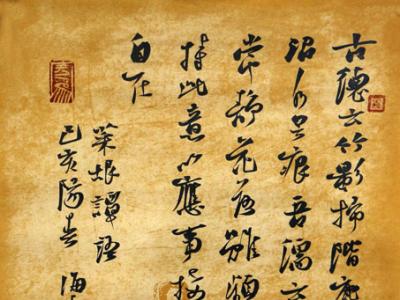 古德云竹影掃階塵
沼水無痕吾儒云
常靜花落雖頻
持此意以應事接
自在
菜根譚語
己亥陽春 海